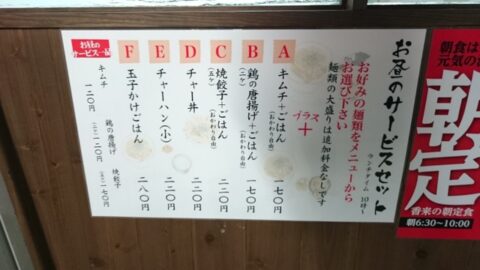 お昼のサービスセット
ランチタイム 10時〜
お好みの麺類をメニューから
お選び下さい
麺類の大盛りは追加料金なしです
プラス
+
A
キムチ+ごはん
(おかわり自由)
一七〇円
B
鶏の唐揚げ+ごはん
(二ケ)
(おかわり自由)
一七〇円
C
焼餃子+ごはん
(五ケ)
(おかわり自由)
二二〇円
D
チャー丼
二二〇円
E
チャーハン(小)
二二〇円
F
玉子かけごはん
二八〇円
お昼の
サービス一品
キムチ
一二〇円
鶏の唐揚げ
一二〇円
焼餃子
一七〇円
朝食は
元気の
朝定
香来の朝定食
朝6:30〜10:00